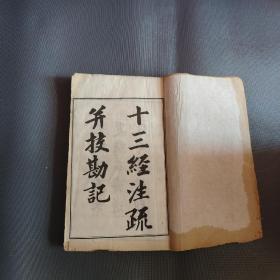 十三經注疏
并技勘記